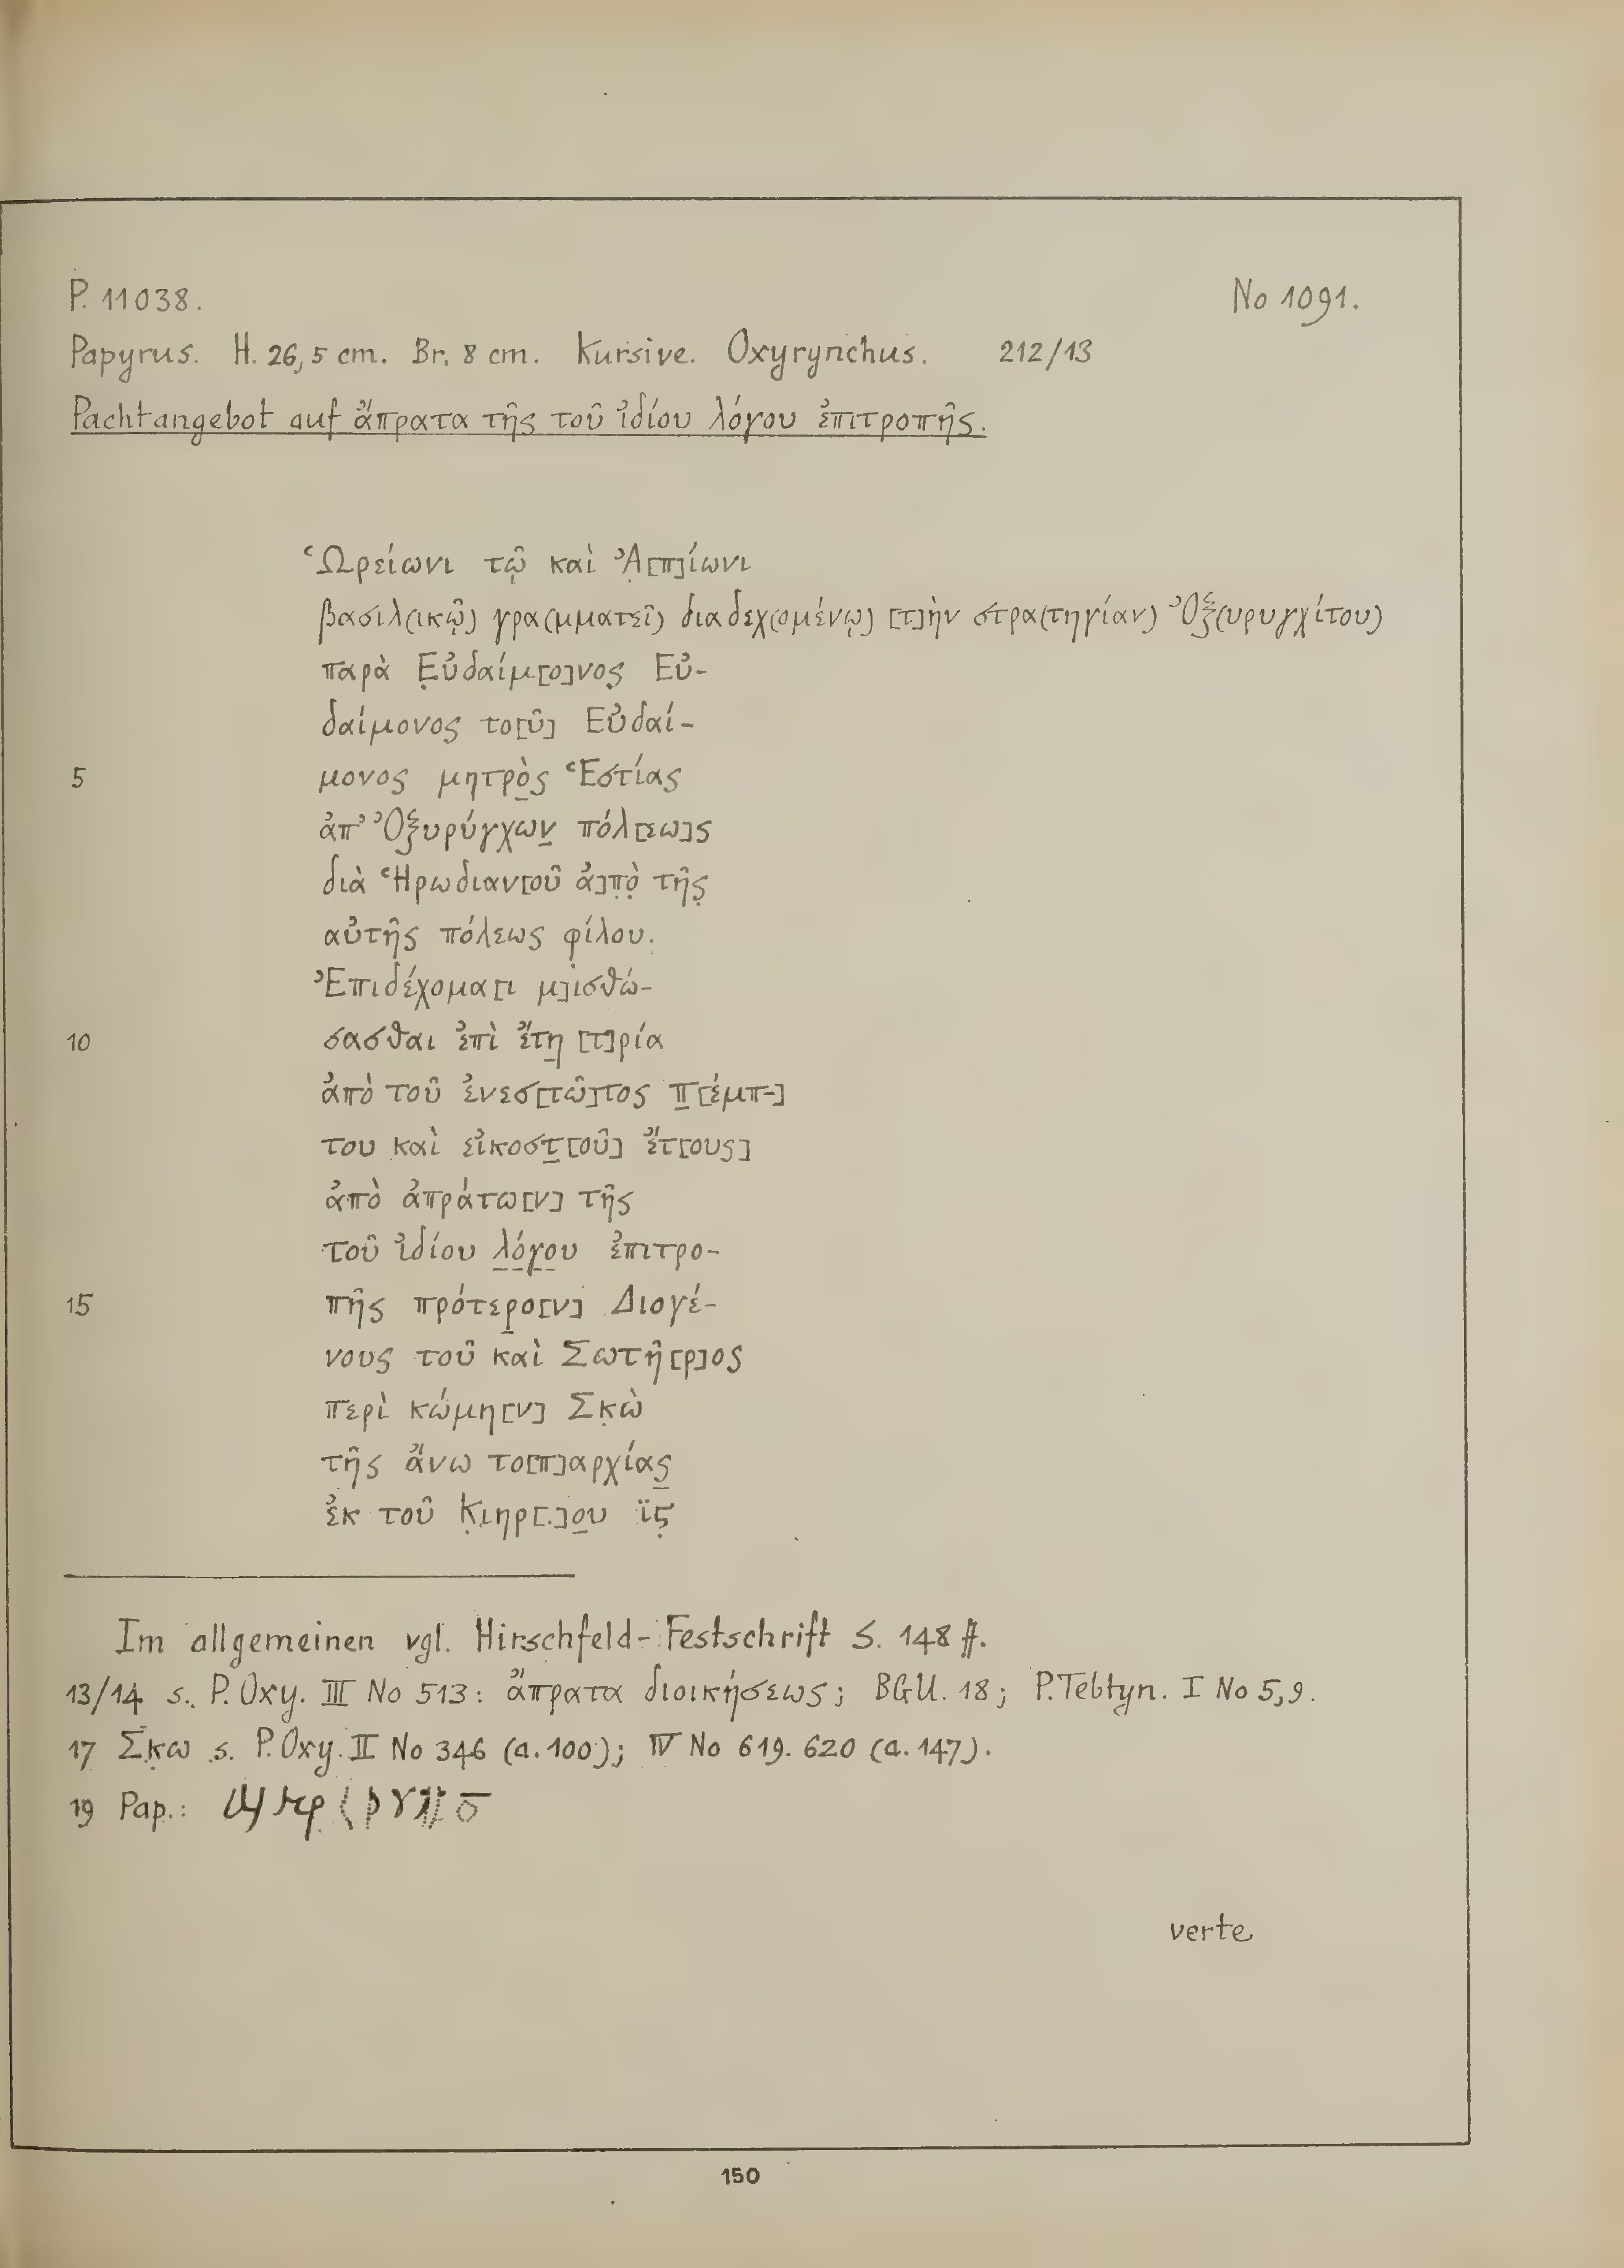 P. 11038. No 1091.
Papyrus. H. 26,5 cm. Br. 8 cm. Kursive. Oxyrynchus. 212/13
Pachtangebot auf ἄπρατα τῆς τοῦ ἰδίου λόγου ἐπιτροπῆς.
Ὡρείωνι τῷ καὶ Ἀ̣[π]ίωνι
βασιλ(ικῷ) γρα(μματεῖ) διαδεχ(ομένῳ) [τ]ὴν στρα(τηγίαν) Ὀξ(υρυγχίτου)
παρὰ Ε̣ὐδαίμ[ο]νος Εὐ-
δαίμονος το[ῦ] Εὐδαί-
5 μονος μητρὸ̲ς Ἑστίας
ἀπ’ Ὀξυρύγχων̲ πόλ[εω]ς
διὰ Ἡρωδιαν[οῦ ἀ]π̣ὸ̣ τῆς̣
αὐτῆς πόλεως φίλου.
Ἐπιδέχομα[ι μ]ισθώ-
10 σασθαι ἐπὶ ἔτη̲ [τ]ρία
ἀπὸ τοῦ ἐνεσ[τῶ]τος π̲[έμπ-]
του καὶ εἰκοστ̲[οῦ] ἔτ[ους]
ἀπὸ ἀπράτω[ν] τῆς
τοῦ ἰδίου λ̲ό̲γ̲ο̲υ ἐπιτρο-
15 πῆς πρότερ̲ο[ν] Διογέ-
νους τοῦ καὶ Σωτῆ[ρ]ος
περὶ κώμη[ν] Σκ̣ὼ
τῆς ἄνω το[π]αρχίας̲
ἐκ τοῦ Κ̣ι̣ηρ[.]ο̲υ ϊϛ̣
Im allgemeinen vgl. Hirschfeld-Festschrift S. 148 ff.
13/14 s. P. Oxy. III No 513: ἄπρατα διοικήσεως; BGU. 18; P. Tebtyn. I No 5,9.
17 Σκ̣ω s. P. Oxy. II No 346 (a. 100); IV No 619. 620 (a. 147).
19 Pap.:
verte
150